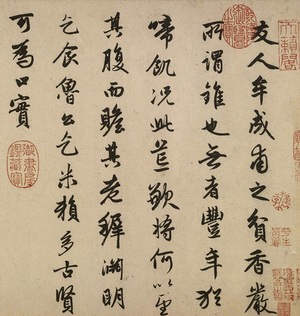 友人牟成甫之貧香嚴
所謂錐也無者豐年猶
啼飢況此荒歉將何以望
其腹而贍其老穉淵明
乞食魯公乞米賴多古賢
可為口實